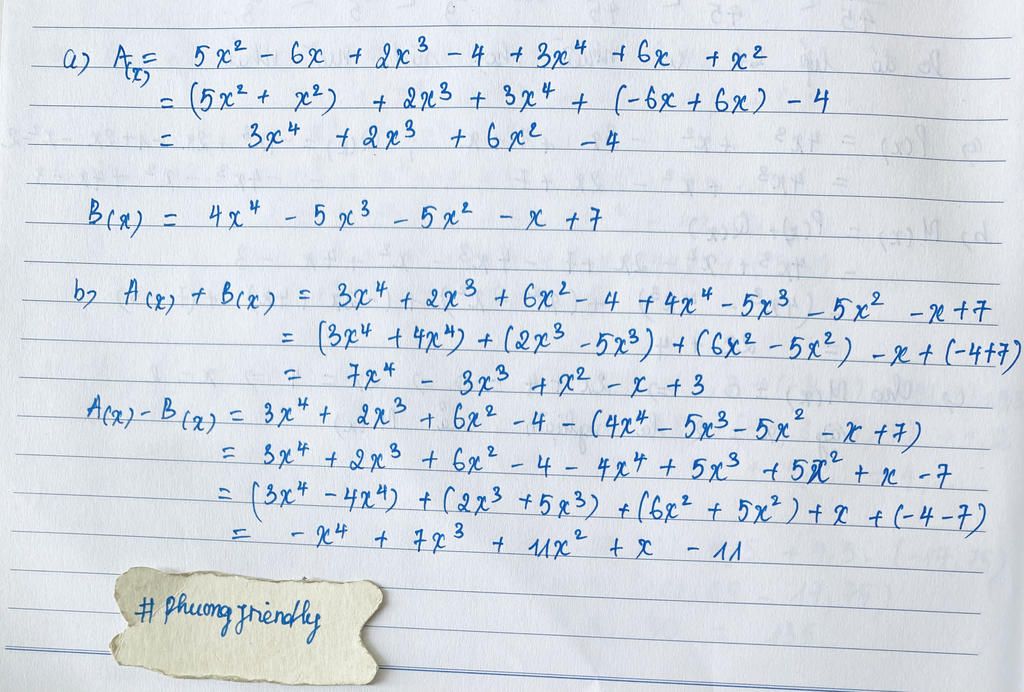 a) A(x) = 5x² - 6x + 2x³ - 4 + 3x⁴ + 6x + x²
= (5x² + x²) + 2x³ + 3x⁴ + (-6x + 6x) - 4
= 3x⁴ + 2x³ + 6x² - 4
B(x) = 4x⁴ - 5x³ - 5x² - x + 7
b) A(x) + B(x) = 3x⁴ + 2x³ + 6x² - 4 + 4x⁴ - 5x³ - 5x² - x + 7
= (3x⁴ + 4x⁴) + (2x³ - 5x³) + (6x² - 5x²) - x + (-4+7)
= 7x⁴ - 3x³ + x² - x + 3
A(x) - B(x) = 3x⁴ + 2x³ + 6x² - 4 - (4x⁴ - 5x³ - 5x² - x + 7)
= 3x⁴ + 2x³ + 6x² - 4 - 4x⁴ + 5x³ + 5x² + x - 7
= (3x⁴ - 4x⁴) + (2x³ + 5x³) + (6x² + 5x²) + x + (-4-7)
= - x⁴ + 7x³ + 11x² + x - 11
# phuong friendly